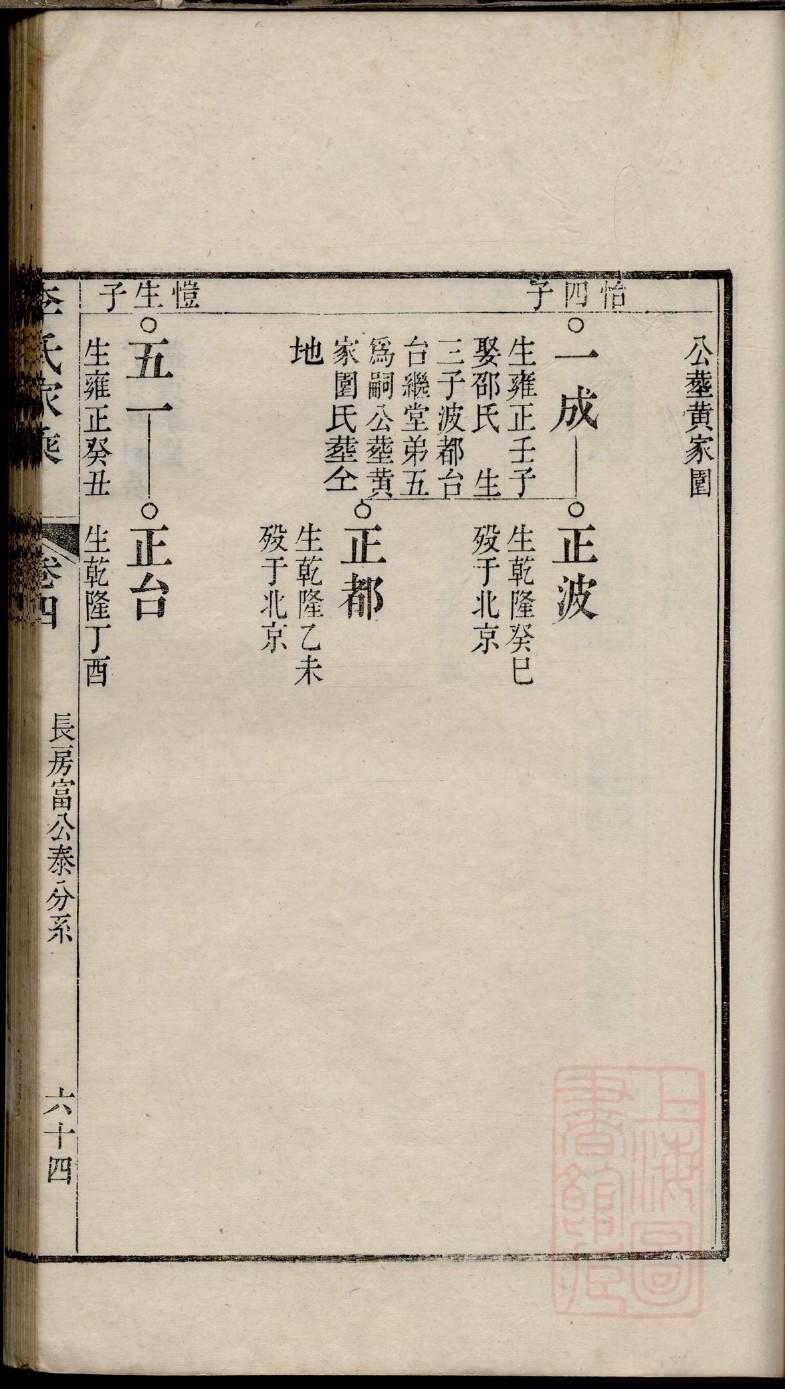 公塟黃家圍
怡四子
一成
生雍正壬子
娶邵氏 生
三子波都台
台繼堂弟五
爲嗣公塟黃
家圍氏塟仝
地
正波
生乾隆癸巳
殁于北京
正都
生乾隆乙未
殁于北京
愷生子
五一
生雍正癸丑
正台
生乾隆丁酉
李氏家乘
卷四
長房富公泰分系
六十四
上海圖
書館藏